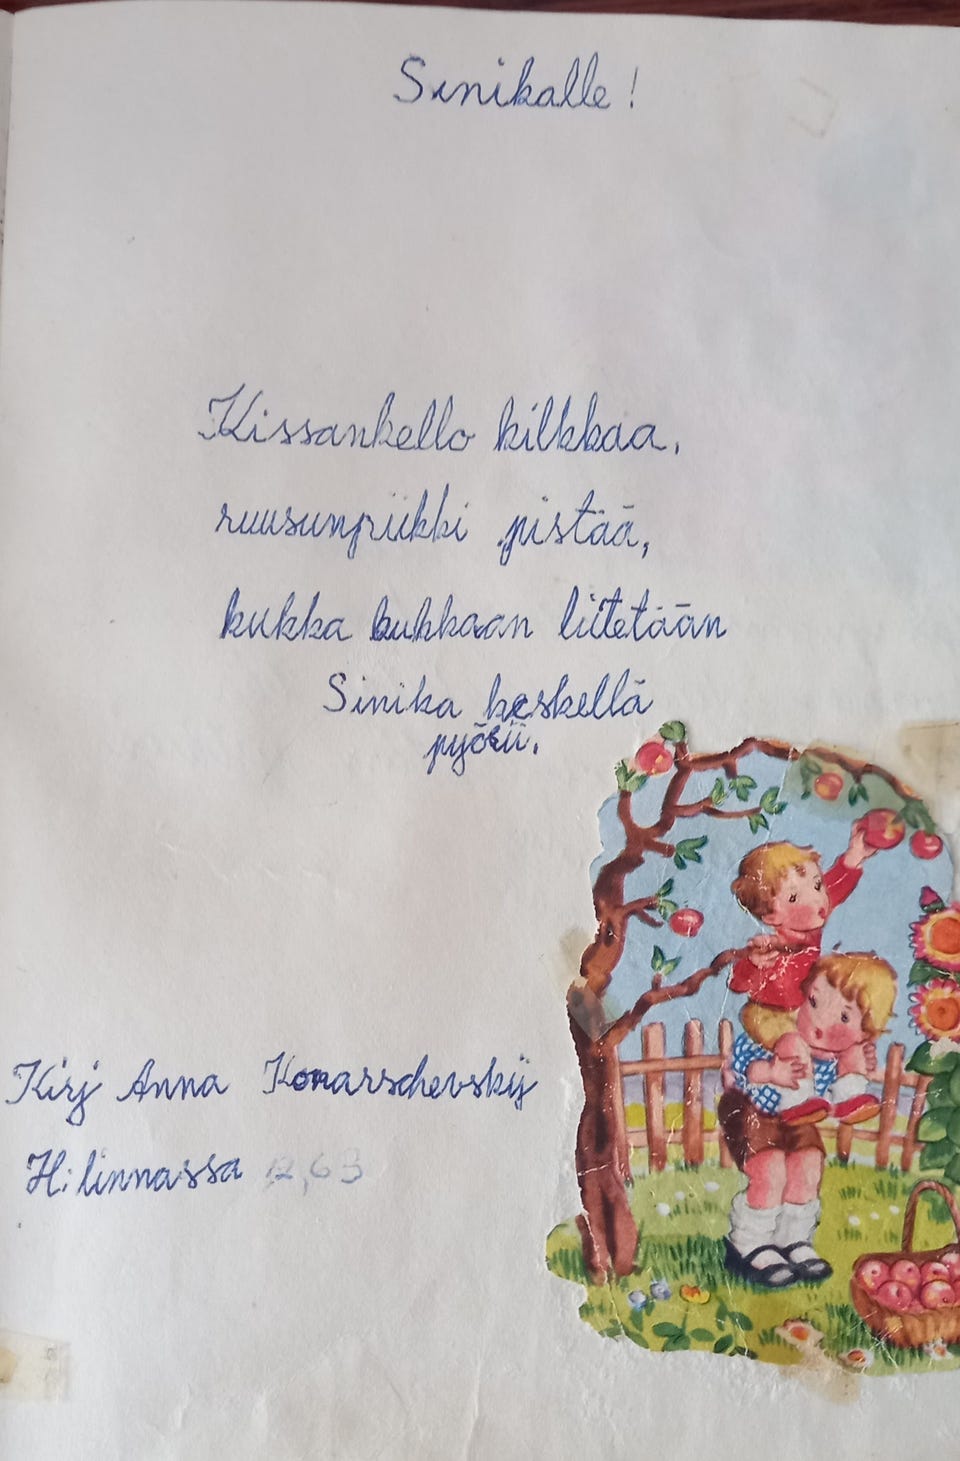 Sinikalle!
Kissankello kilkkaa,
ruusunpiikki pistää,
kukka kukkaan liitetään
Sinika keskellä
pyörii.
Kirj Anna Konarschevskij
H:linnassa 12,63